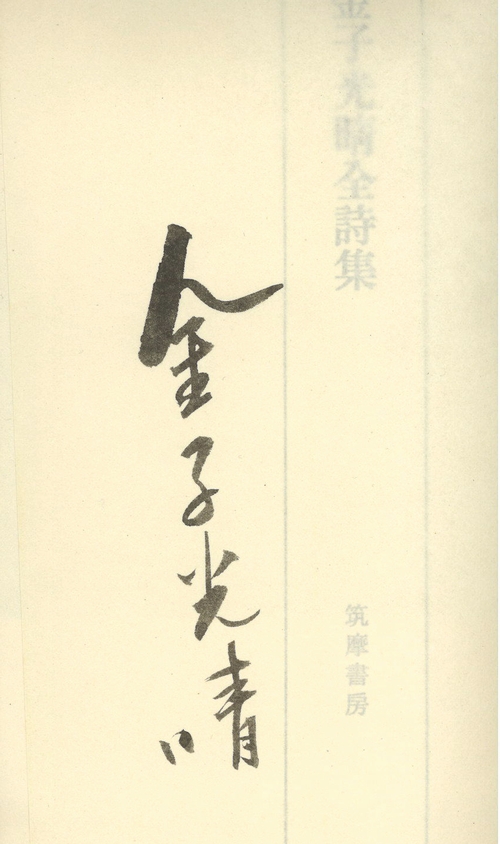 金子光晴全詩集
筑摩書房
金子光晴